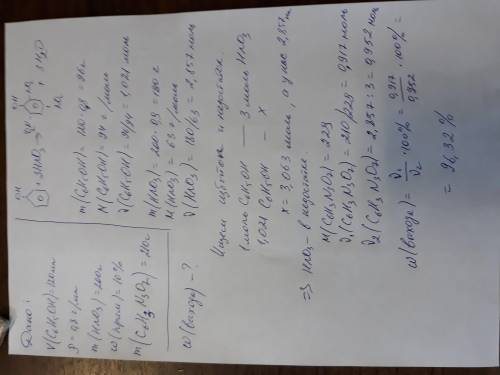 Дано:
V(C₆H₅OH)=120мл
ρ=0,8 г/мл
m(HNO₃)=200г
ω(прим)=10%
m(C₆H₃N₃O₇)=210г
ω(выхода)-?
OH
+ 3HNO₃ →
OH
NO₂
NO₂
+ 3H₂O
m(C₆H₅OH)= 120·0,8=96г
M(C₆H₅OH)= 94 г/моль
ν(C₆H₅OH)= 96/94 = 1,021 моль
m(HNO₃)= 200·0,9=180 г
M(HNO₃)= 63 г/моль
ν(HNO₃)= 180/63 = 2,857 моль
избыток и недостаток.
1 моль C₆H₅OH — 3 моль HNO₃
1,021 C₆H₅OH — x
x = 3,063 моль, а у нас 2,857
=> HNO₃ - в недостатке.
M(C₆H₃N₃O₇) = 229
ν₁(C₆H₃N₃O₇) = 210/229 = 0,917 моль
ν₂(C₆H₃N₃O₇) = 2,857 : 3 = 0,952 моль
ω(выхода) = ν₁/ν₂ · 100% = 0,917/0,952 · 100% =
= 96,32 %